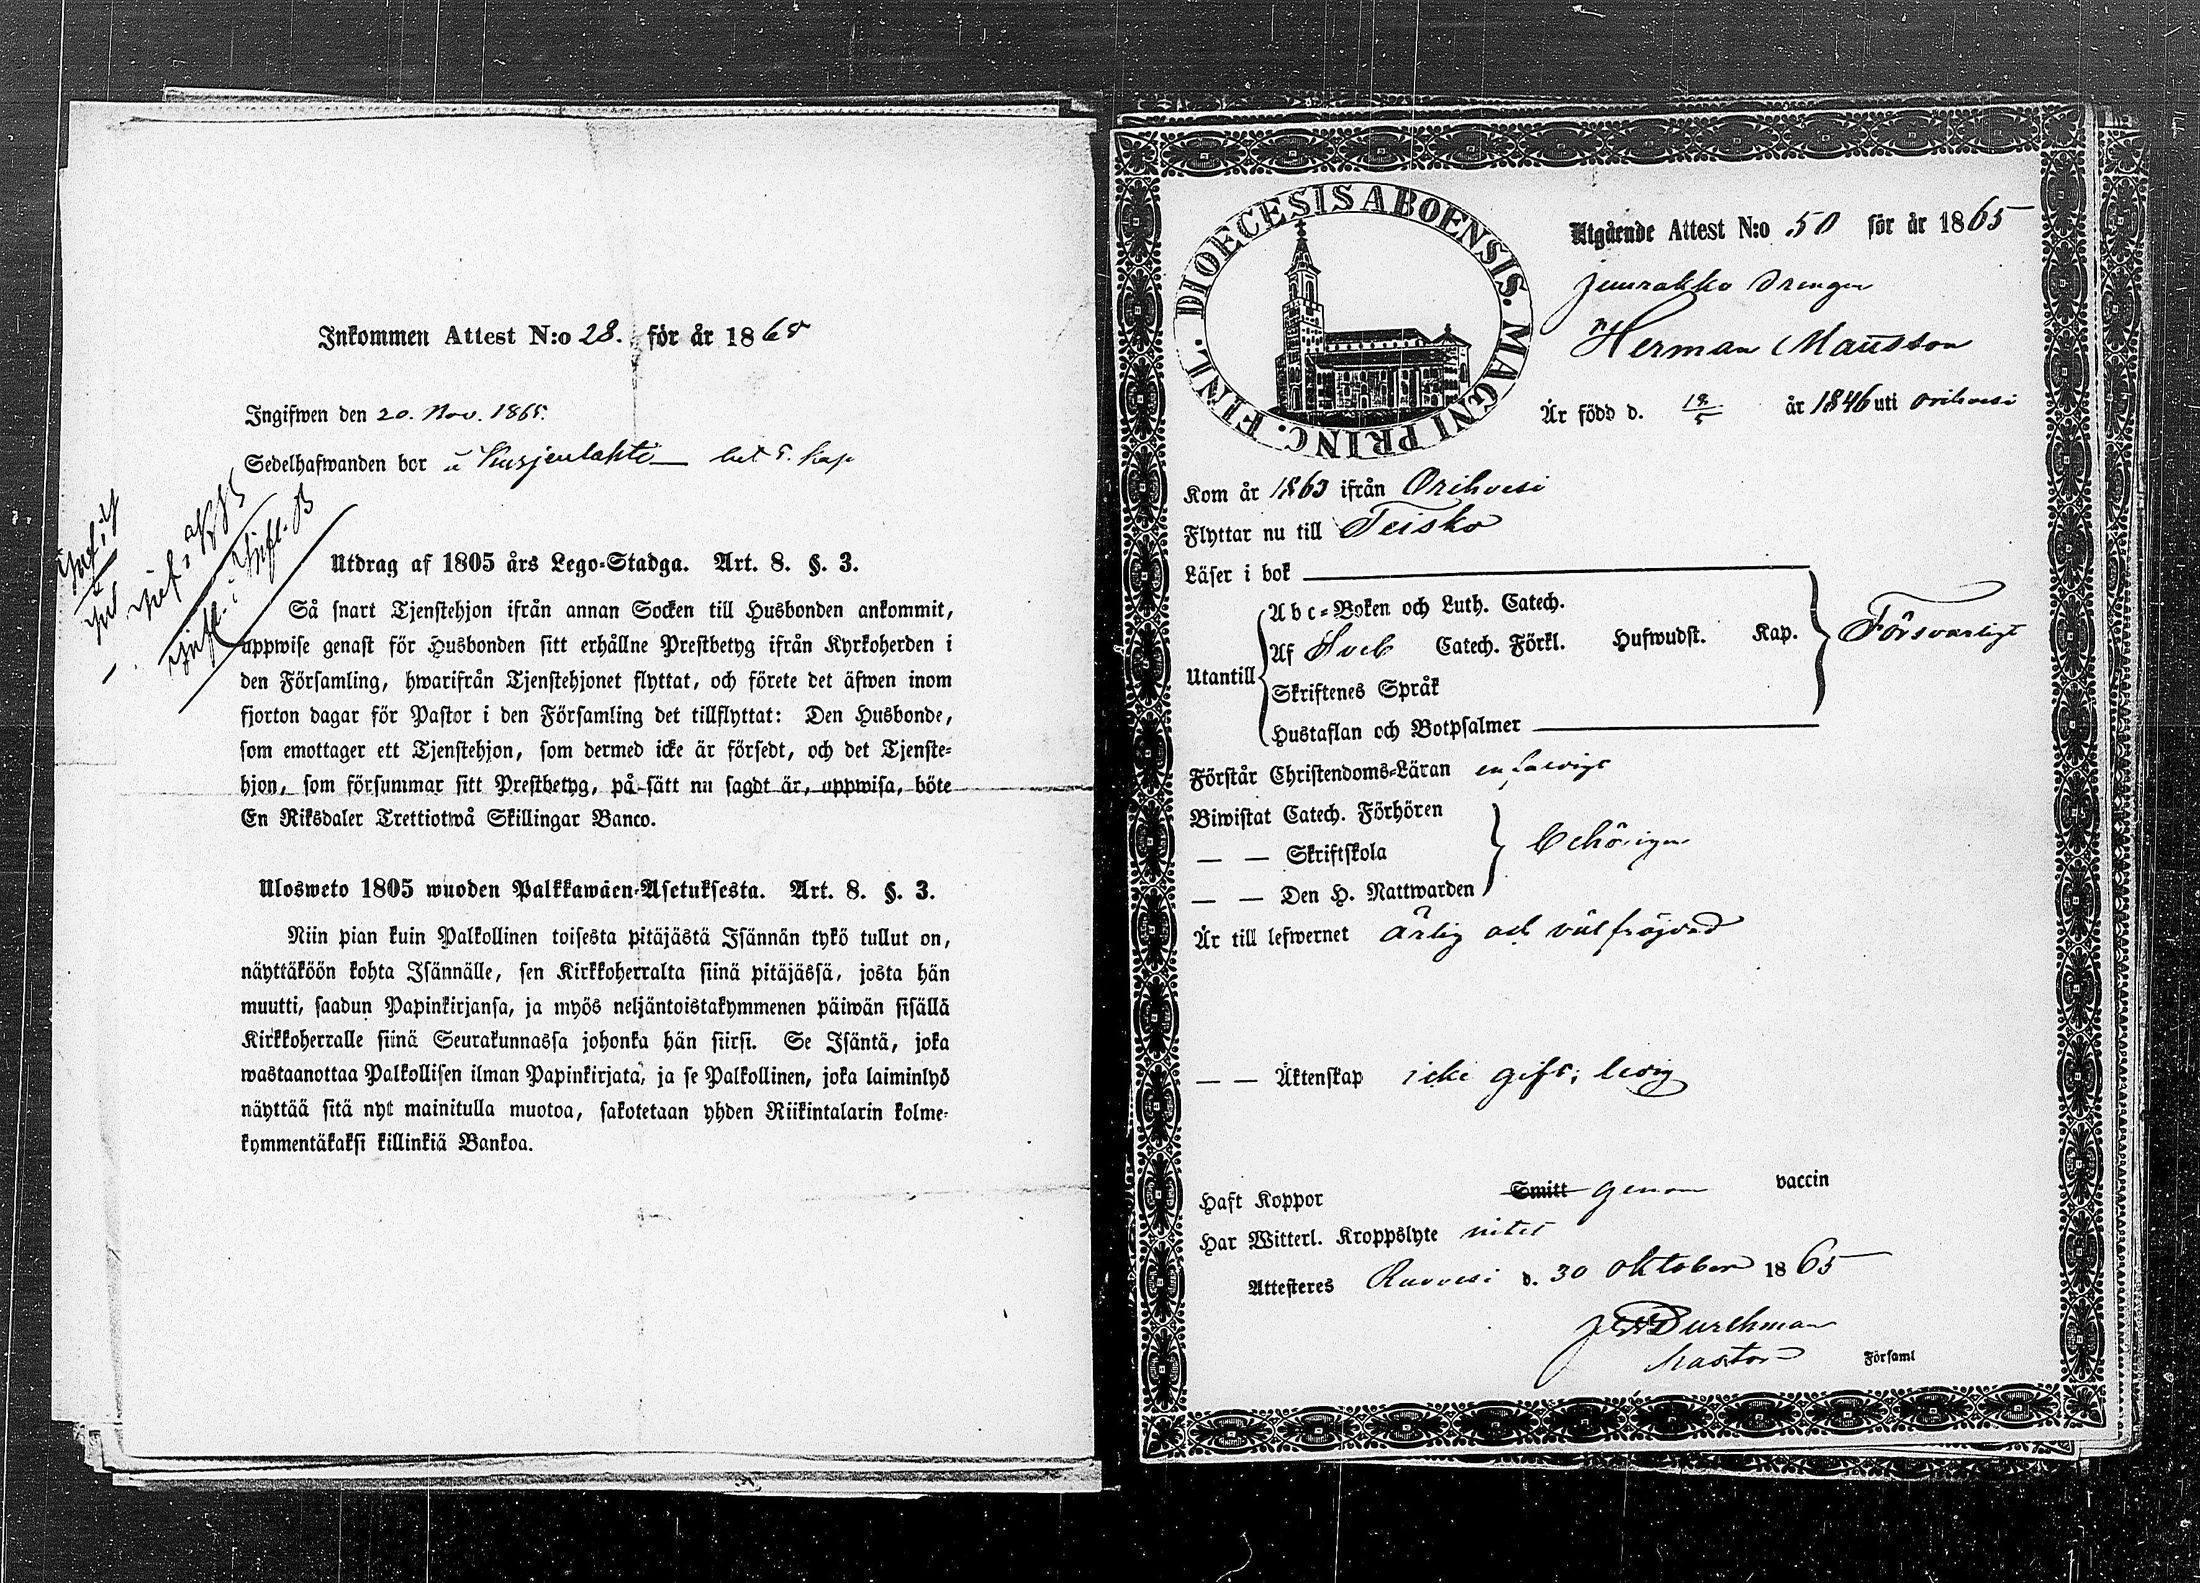 Inkommen Attest N:o 28. för år 1865
Ingifwen den 20. Nov. 1865.
Sedelhafwanden bor
Utdrag af 1805 års Lego-Stadga. Art. 8. §. 3.
Så snart Tjenstehjon ifrån annan Socken till Husbonden ankommit,
uppwise genast för Husbonden sitt erhållne Prestbetyg ifrån Kyrkoherden i
den Församling, hwarifrån Tjenstehjonet flyttat, och förete det äfwen inom
fjorton dagar för Pastor i den Församling det tillflyttat: Den Husbonde,
som emottager ett Tjenstehjon, som dermed icke är försedt, och det Tjenste-
hjon, som försummar sitt Prestbetyg, på sätt nu sagdt är, uppwisa, böte
En Riksdaler Trettiotwå Skillingar Banco.
Ulosweto 1805 wuoden Palkkawäen-Asetuksesta. Art. 8. §. 3.
Niin pian kuin Palkollinen toisesta pitäjästä Isännän tykö tullut on,
näyttäköön kohta Isännälle, sen Kirkkoherralta siinä pitäjässä, josta hän
muutti, saadun Papinkirjansa, ja myös neljäntoistakymmenen päiwän sisällä
Kirkkoherralle siinä Seurakunnassa johonka hän siirsi. Se Isäntä, joka
wastaanottaa Palkollisen ilman Papinkirjata, ja se Palkollinen, joka laiminlyö
näyttää sitä nyt mainitulla muotoa, sakotetaan yhden Riikintalarin kolme-
kymmentäkaksi killinkiä Bankoa.
DIOECESIS ABOENSIS. MAGNI PRINC. FINL.
Utgående Attest N:o 50 för år 1865
Juurakko Drengen
Herman Mattsson
Är född d. år 1846 uti Orihvesi
Kom år 1863 ifrån Orihvesi
Flyttar nu till Teisko
Läser i bok
Utantill
Abc-Boken och Luth. Catech.
Af Sveb Catech. Förkl. Hufwudst. Kap.
Försvarligt
Skriftenes Språk
Hustaflan och Botpsalmer
Förstår Christendoms-Läran enfaldigt
Biwistat Catech. Förhören
— — Skriftskola
behörigen
— — Den H. Nattwarden
Är till lefwernet ärlig och välfräjdad
— — Äktenskap icke gift; ledig
Haft Koppor Smitt genom vaccin
Har Witterl. Kroppslyte intet
Attesteres Ruovesi d. 30 Oktober 1865
Durchman
Pastor Församl